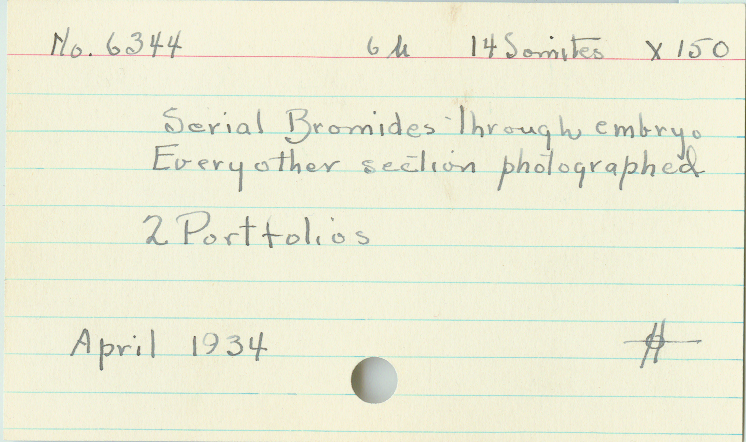 No. 6344 6 µ 14 Somites X 150
Serial Bromides Through embryo
Every other section photographed
2 Portfolios
April 1934